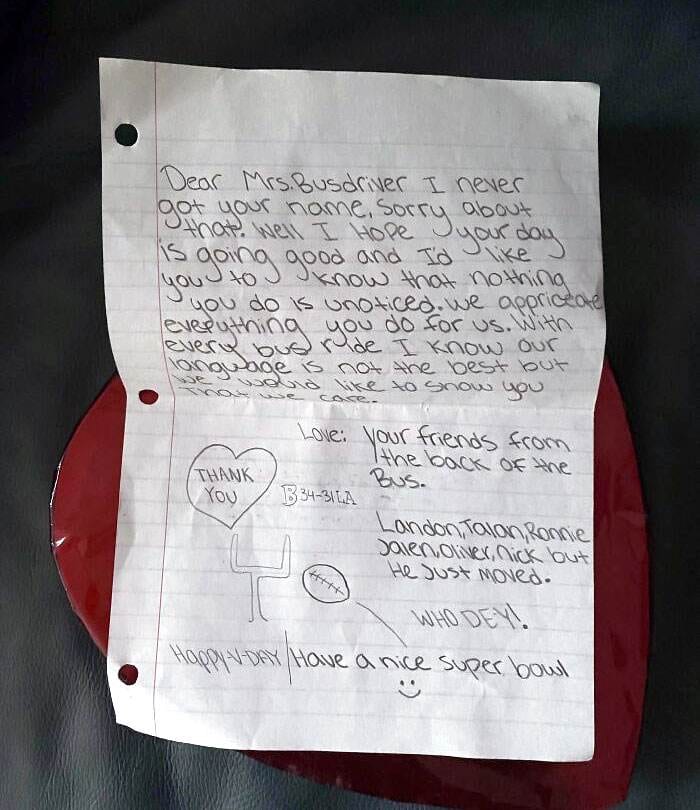 Dear Mrs.Busdriver I never
got your name, Sorry about
that. Well I Hope your day
is going good and I'd like
you to know that nothing
you do is unoticed. we appriceate
everything you do for us. With
every bus ride I know our
language is not the best but
we would like to show you
that we care.
Love: your friends from
the back of the
Bus.
THANK
YOU
B34-31LA
Landon, Talan, Ronnie
Jalen, Oliver, nick but
He Just moved.
WHO DEY!
Happy-V-DAY/Have a nice super bowl